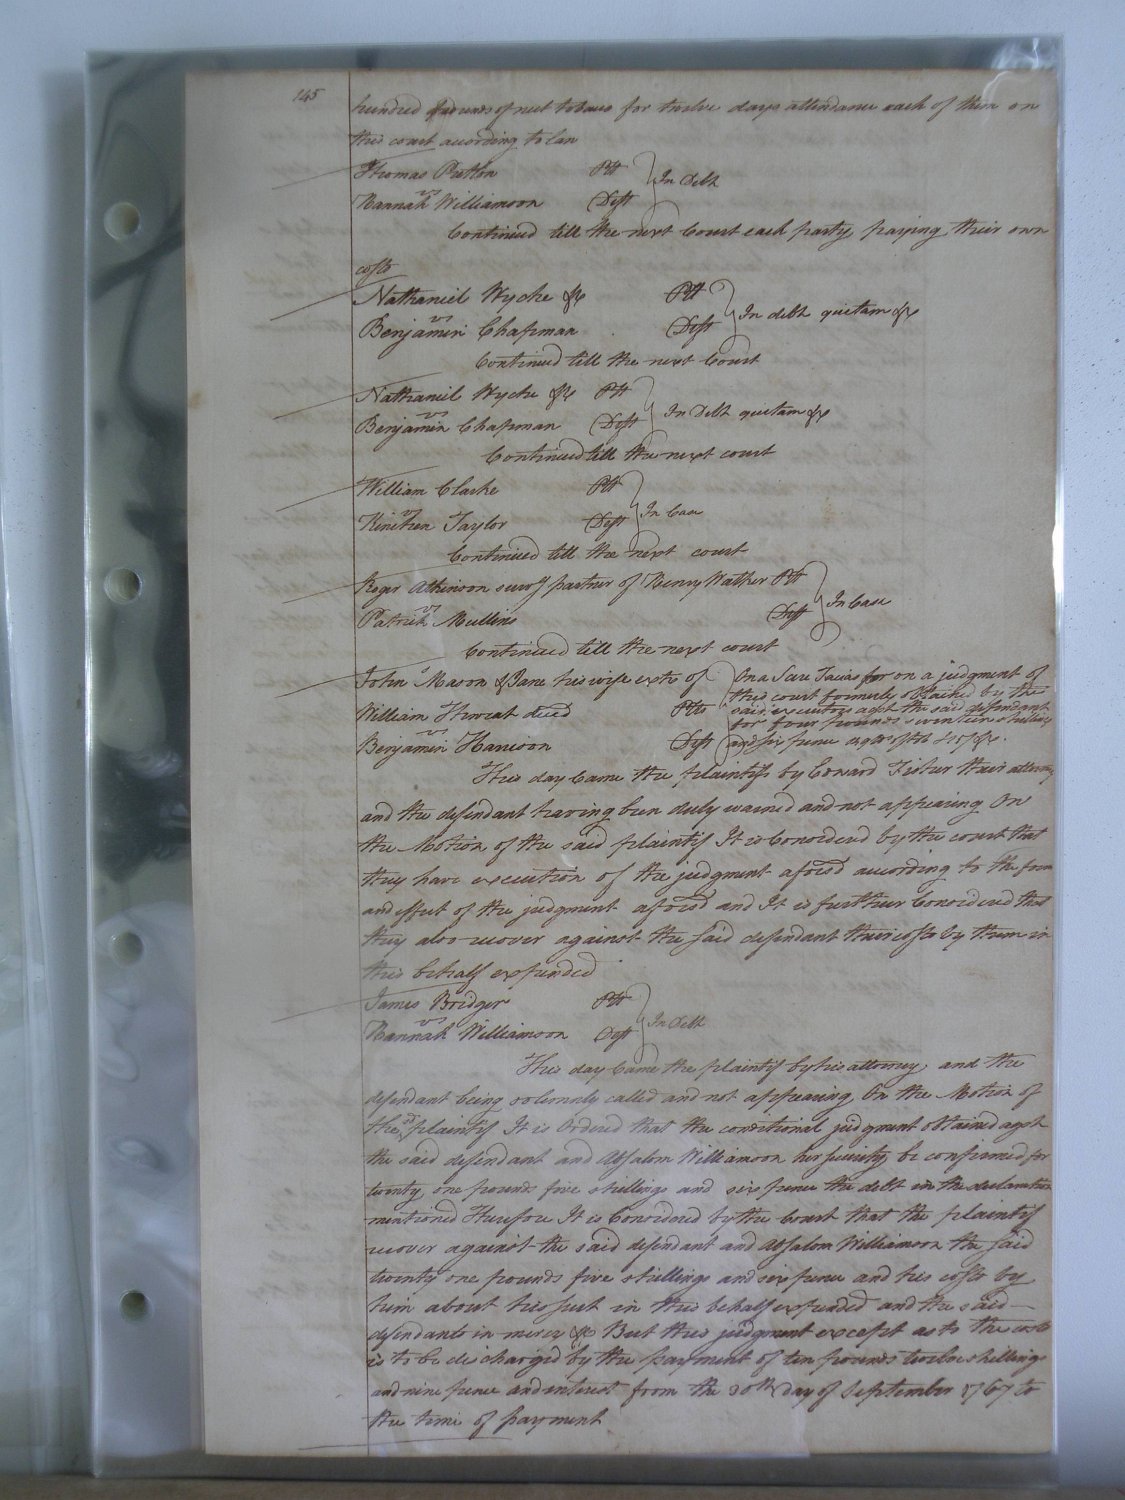 145
hundred pounds of nett tobacco for twelve days attendance each of them on
this court according to law
Thomas Patton Plt
vs } In Debt
Hannah Williamson Deft
Continued till the next Court each party paying their own
costs
Nathaniel Wyche &c Plt
vs } In debt quitam &c
Benjamin Chapman Deft
Continued till the next Court
Nathaniel Wyche &c Plt
vs } In Debt quitam &c
Benjamin Chapman Deft
Continued till the next court
William Clarke Plt
vs } In Case
Kinchen Taylor Deft
Continued till the next court
Roger Atkinson survg partner of Henry Walker Plt
vs } In Case
Patrick Mullins Deft
Continued till the next court
John Mason & Jane his wife exts of
William Threeat deced Plts
vs
Benjamin Harrison Deft
On a Scire Facias for on a judgment of
this court formerly obtained by the
said executors agst the said defendant
for four pounds seventeen shillings
and six pence
This day Came the plaintifs by Edward Fisher their attorney
and the defendant having been duly warned and not appearing On
the Motion of the said plaintifs It is Considered by the court that
they have execution of the judgment afsd according to the form
and effect of the judgment aforsd and It is further Considered that
they also recover against the said defendant their costs by them in
this behalf expended
James Bridger Plt
vs } In Debt
Hannah Williamson Deft
This day Came the plaintif by his attorney, and the
defendant being solemnly called and not appearing On the Motion of
the sd plaintif It is Ordered that the conditional judgment obtained agst
the said defendant and Absalom Williamson her security be confirmed for
twenty one pounds five shillings and six pence the debt in the declaration
mentioned Therefore It is Considered by the Court that the plaintif
recover against the said defendant and Absalom Williamson the said
twenty one pounds five shillings and six pence and his costs by
him about his suit in this behalf expended and the said
defendants in mercy &c But this judgment except as to the costs
is to be discharged by the payment of ten pounds twelve shillings
and nine pence and interest from the 20th day of September 1767 to
the time of payment